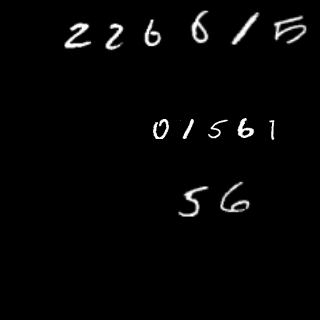 226615
01561
56